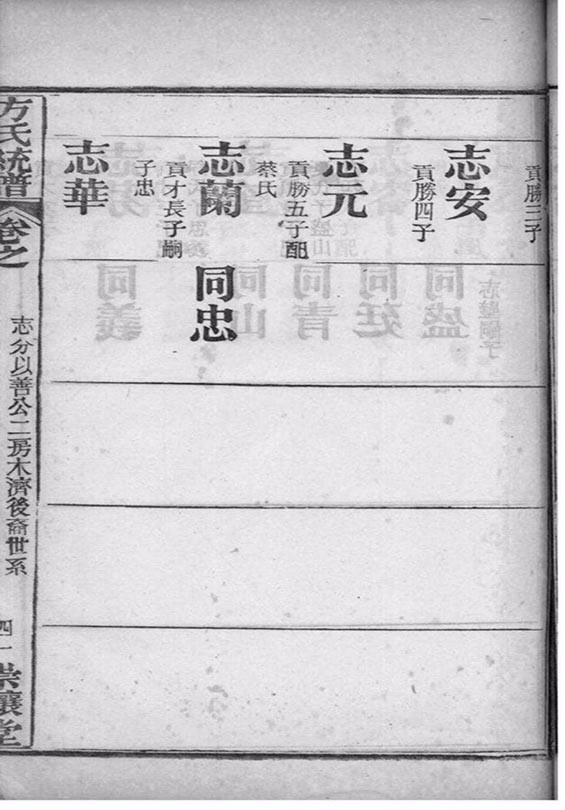 貢勝三子
志安
貢勝四子
志元
貢勝五子配
蔡氏
志蘭
貢才長子嗣
子忠
志華
同忠
方氏統譜
卷之
志分以善公二房木濟後裔世系
四一
崇讓堂